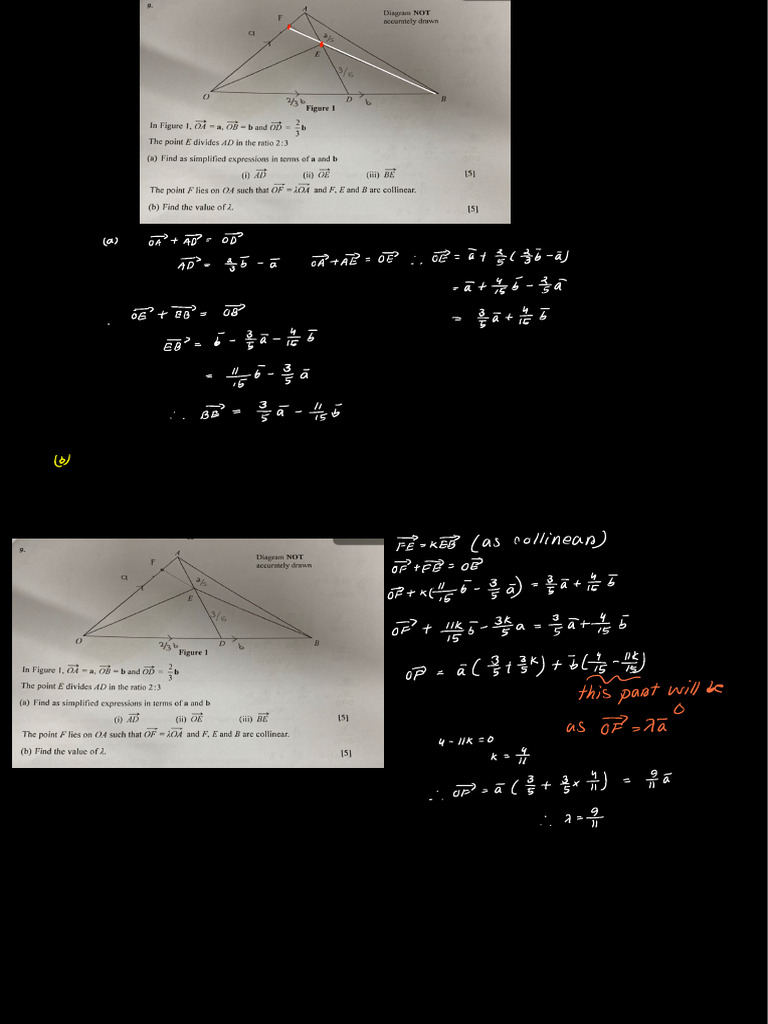 9.
Diagram NOT
accurately drawn
A
F
a
2/5
E
3/5
O
2/3 b
D
b
B
Figure 1
In Figure 1, OA⃗ = a, OB⃗ = b and OD⃗ = 2/3 b
The point E divides AD in the ratio 2:3
(a) Find as simplified expressions in terms of a and b
(i) AD⃗ (ii) OE⃗ (iii) BE⃗ [5]
The point F lies on OA such that OF⃗ = λOA⃗ and F, E and B are collinear.
(b) Find the value of λ. [5]
(a) OA⃗ + AD⃗ = OD⃗
AD⃗ = 2/3 b̄ - ā
OA⃗ + AE⃗ = OE⃗ ∴ OE⃗ = ā + 2/5 (2/3 b̄ - ā)
= ā + 4/15 b̄ - 2/5 ā
= 3/5 ā + 4/15 b̄
OE⃗ + EB⃗ = OB⃗
EB⃗ = b̄ - 3/5 ā - 4/15 b̄
= 11/15 b̄ - 3/5 ā
∴ BE⃗ = 3/5 ā - 11/15 b̄
(b)
9.
Diagram NOT
accurately drawn
A
F
a
2/5
E
3/5
O
2/3 b
D
b
B
Figure 1
In Figure 1, OA⃗ = a, OB⃗ = b and OD⃗ = 2/3 b
The point E divides AD in the ratio 2:3
(a) Find as simplified expressions in terms of a and b
(i) AD⃗ (ii) OE⃗ (iii) BE⃗ [5]
The point F lies on OA such that OF⃗ = λOA⃗ and F, E and B are collinear.
(b) Find the value of λ. [5]
FE⃗ = KEB⃗ (as collinear)
OF⃗ + FE⃗ = OE⃗
OF⃗ + K(11/15 b̄ - 3/5 ā) = 3/5 ā + 4/15 b̄
OF⃗ + 11K/15 b̄ - 3K/5 a = 3/5 ā + 4/15 b̄
OF⃗ = ā(3/5 + 3/5 K) + b̄(4/15 - 11K/15)
this part will be
0
as OF⃗ = λā
4 - 11K = 0
K = 4/11
∴ OF⃗ = ā(3/5 + 3/5 × 4/11) = 9/11 ā
∴ λ = 9/11